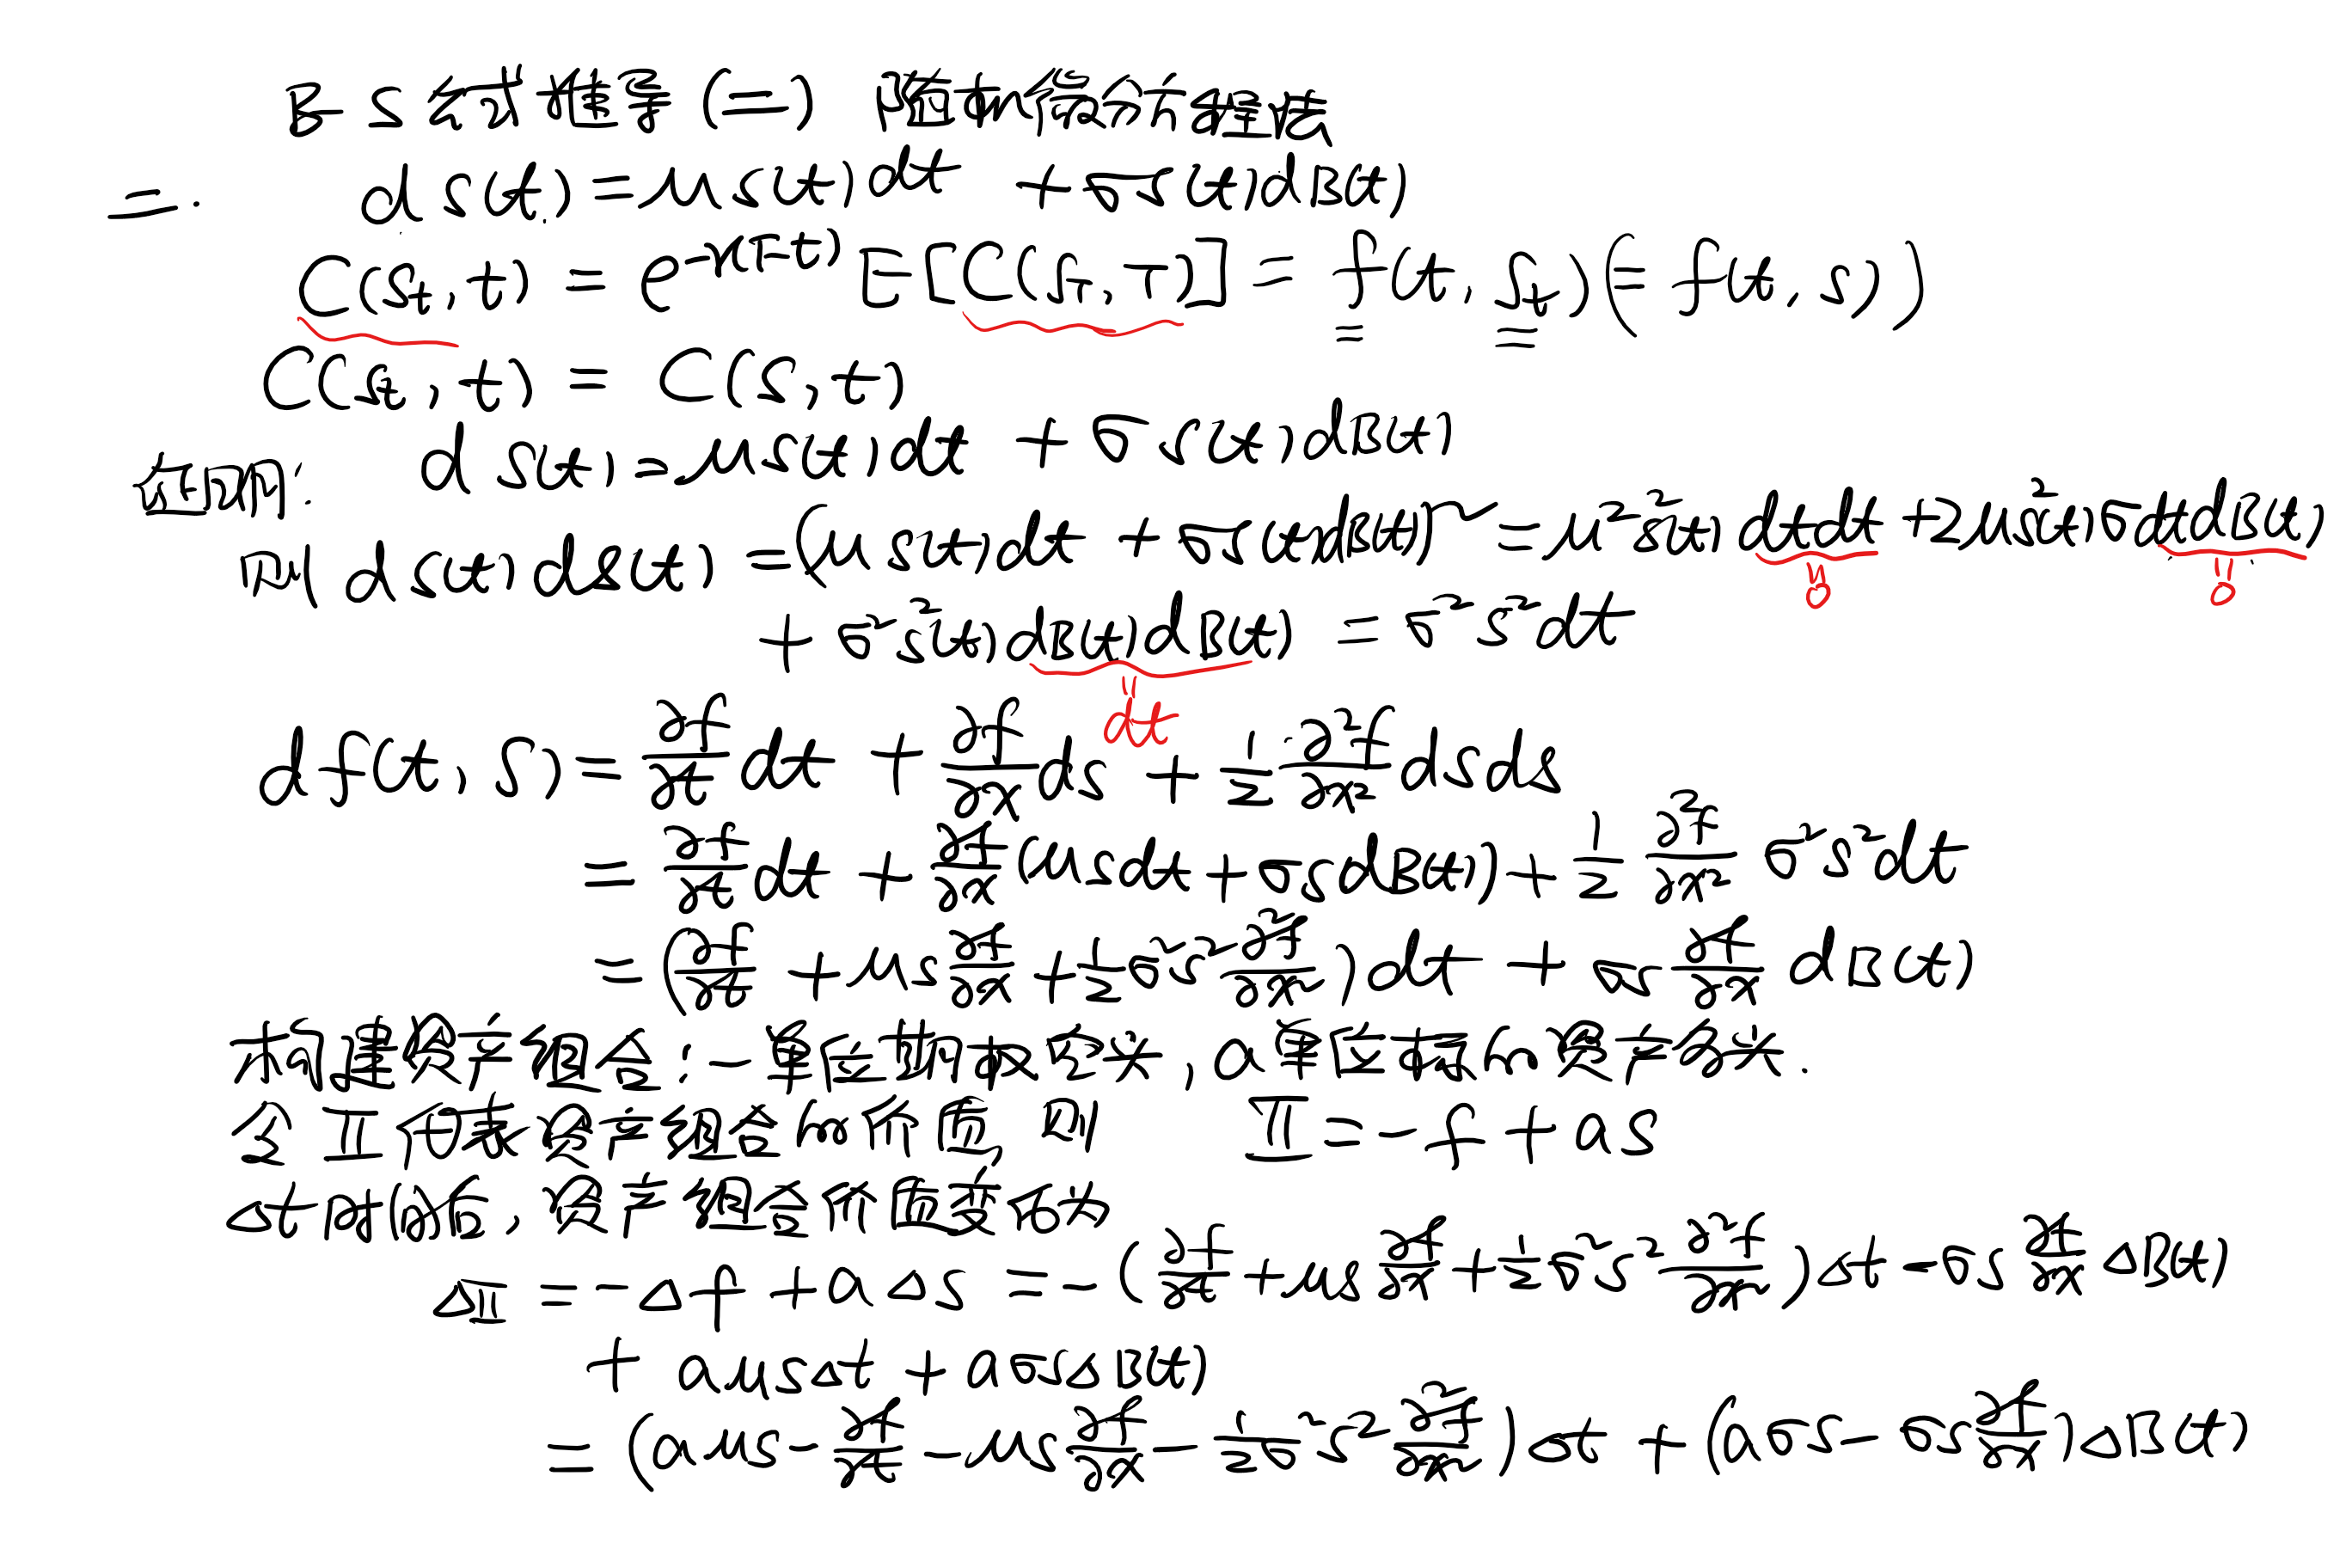 BS公式推导(二) 随机微分方程法
二. dS(t)=μS(t)dt + σS(t)dB(t)
C(S_t, t) = e^{-r(T-t)} E[C(S_T, T)] = f(t, S_t)(= f(t, S))
C(S_t, t) = C(S, t)
证明: dS(t)=μS(t)dt + σS(t)dB(t)
则 dS(t)dS(t) =(μS(t)dt + σS(t)dB(t))² = μ²S²(t)dtdt + 2μS²(t)σdtdB(t)
0 0
+ σ²S²(t)dB(t)dB(t) = σ²S²dt
dt
df(t, S)= ∂f/∂t dt + ∂f/∂x dS + 1/2 ∂²f/∂x² dSdS
= ∂f/∂t dt + ∂f/∂x (μSdt+σSdB(t)) + 1/2 ∂²f/∂x² σ²S²dt
=(∂f/∂t + μS ∂f/∂x + 1/2 σ²S² ∂²f/∂x²)dt + σS ∂f/∂x dB(t)
构建资产组合: 一单位期权空头, a单位标的资产多头.
令Π代表资产组合的价值, 则 Π = -f + aS
Δt时间后, 资产组合价值变化为
ΔΠ = -Δf + aΔS = -(∂f/∂t + μS ∂f/∂x + 1/2 σ²S² ∂²f/∂x²)Δt - σS ∂f/∂x ΔB(t)
+ aμSΔt + aσSΔB(t)
= (aμS - ∂f/∂t - μS ∂f/∂x - 1/2 σ²S² ∂²f/∂x²)Δt + (aσS - σS ∂f/∂x)ΔB(t)